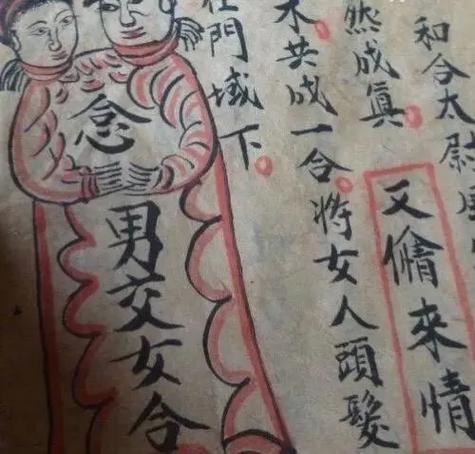 和合太尉
然成眞。
又來情
共成一合。將女人頭髮
在門域下。
念男交女合